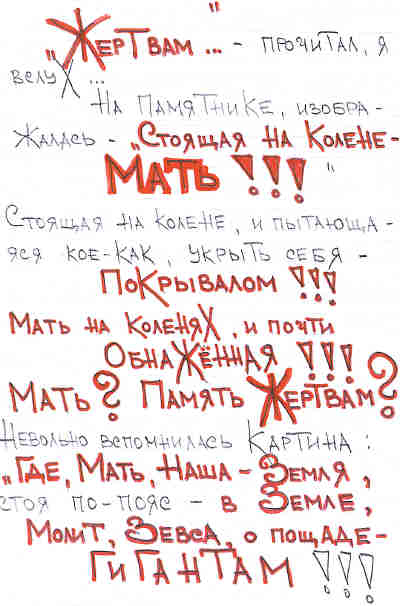 „Жертвам ..." - прочитал, я
вслух ...
На памятнике, изобра-
жалась - „Стоящая на Колене-
Мать!!!"
Стоящая на колене, и пытающа-
яся кое-как, укрыть себя -
Покрывалом!!!
Мать на Коленях, и почти
Обнажённая!!!
Мать? Память Жертвам?
Невольно вспомнилась Картина:
„Где, Мать, Наша - Земля,
стоя по-пояс - в Земле,
Молит, Зевса, о пощаде-
Гигантам!!!